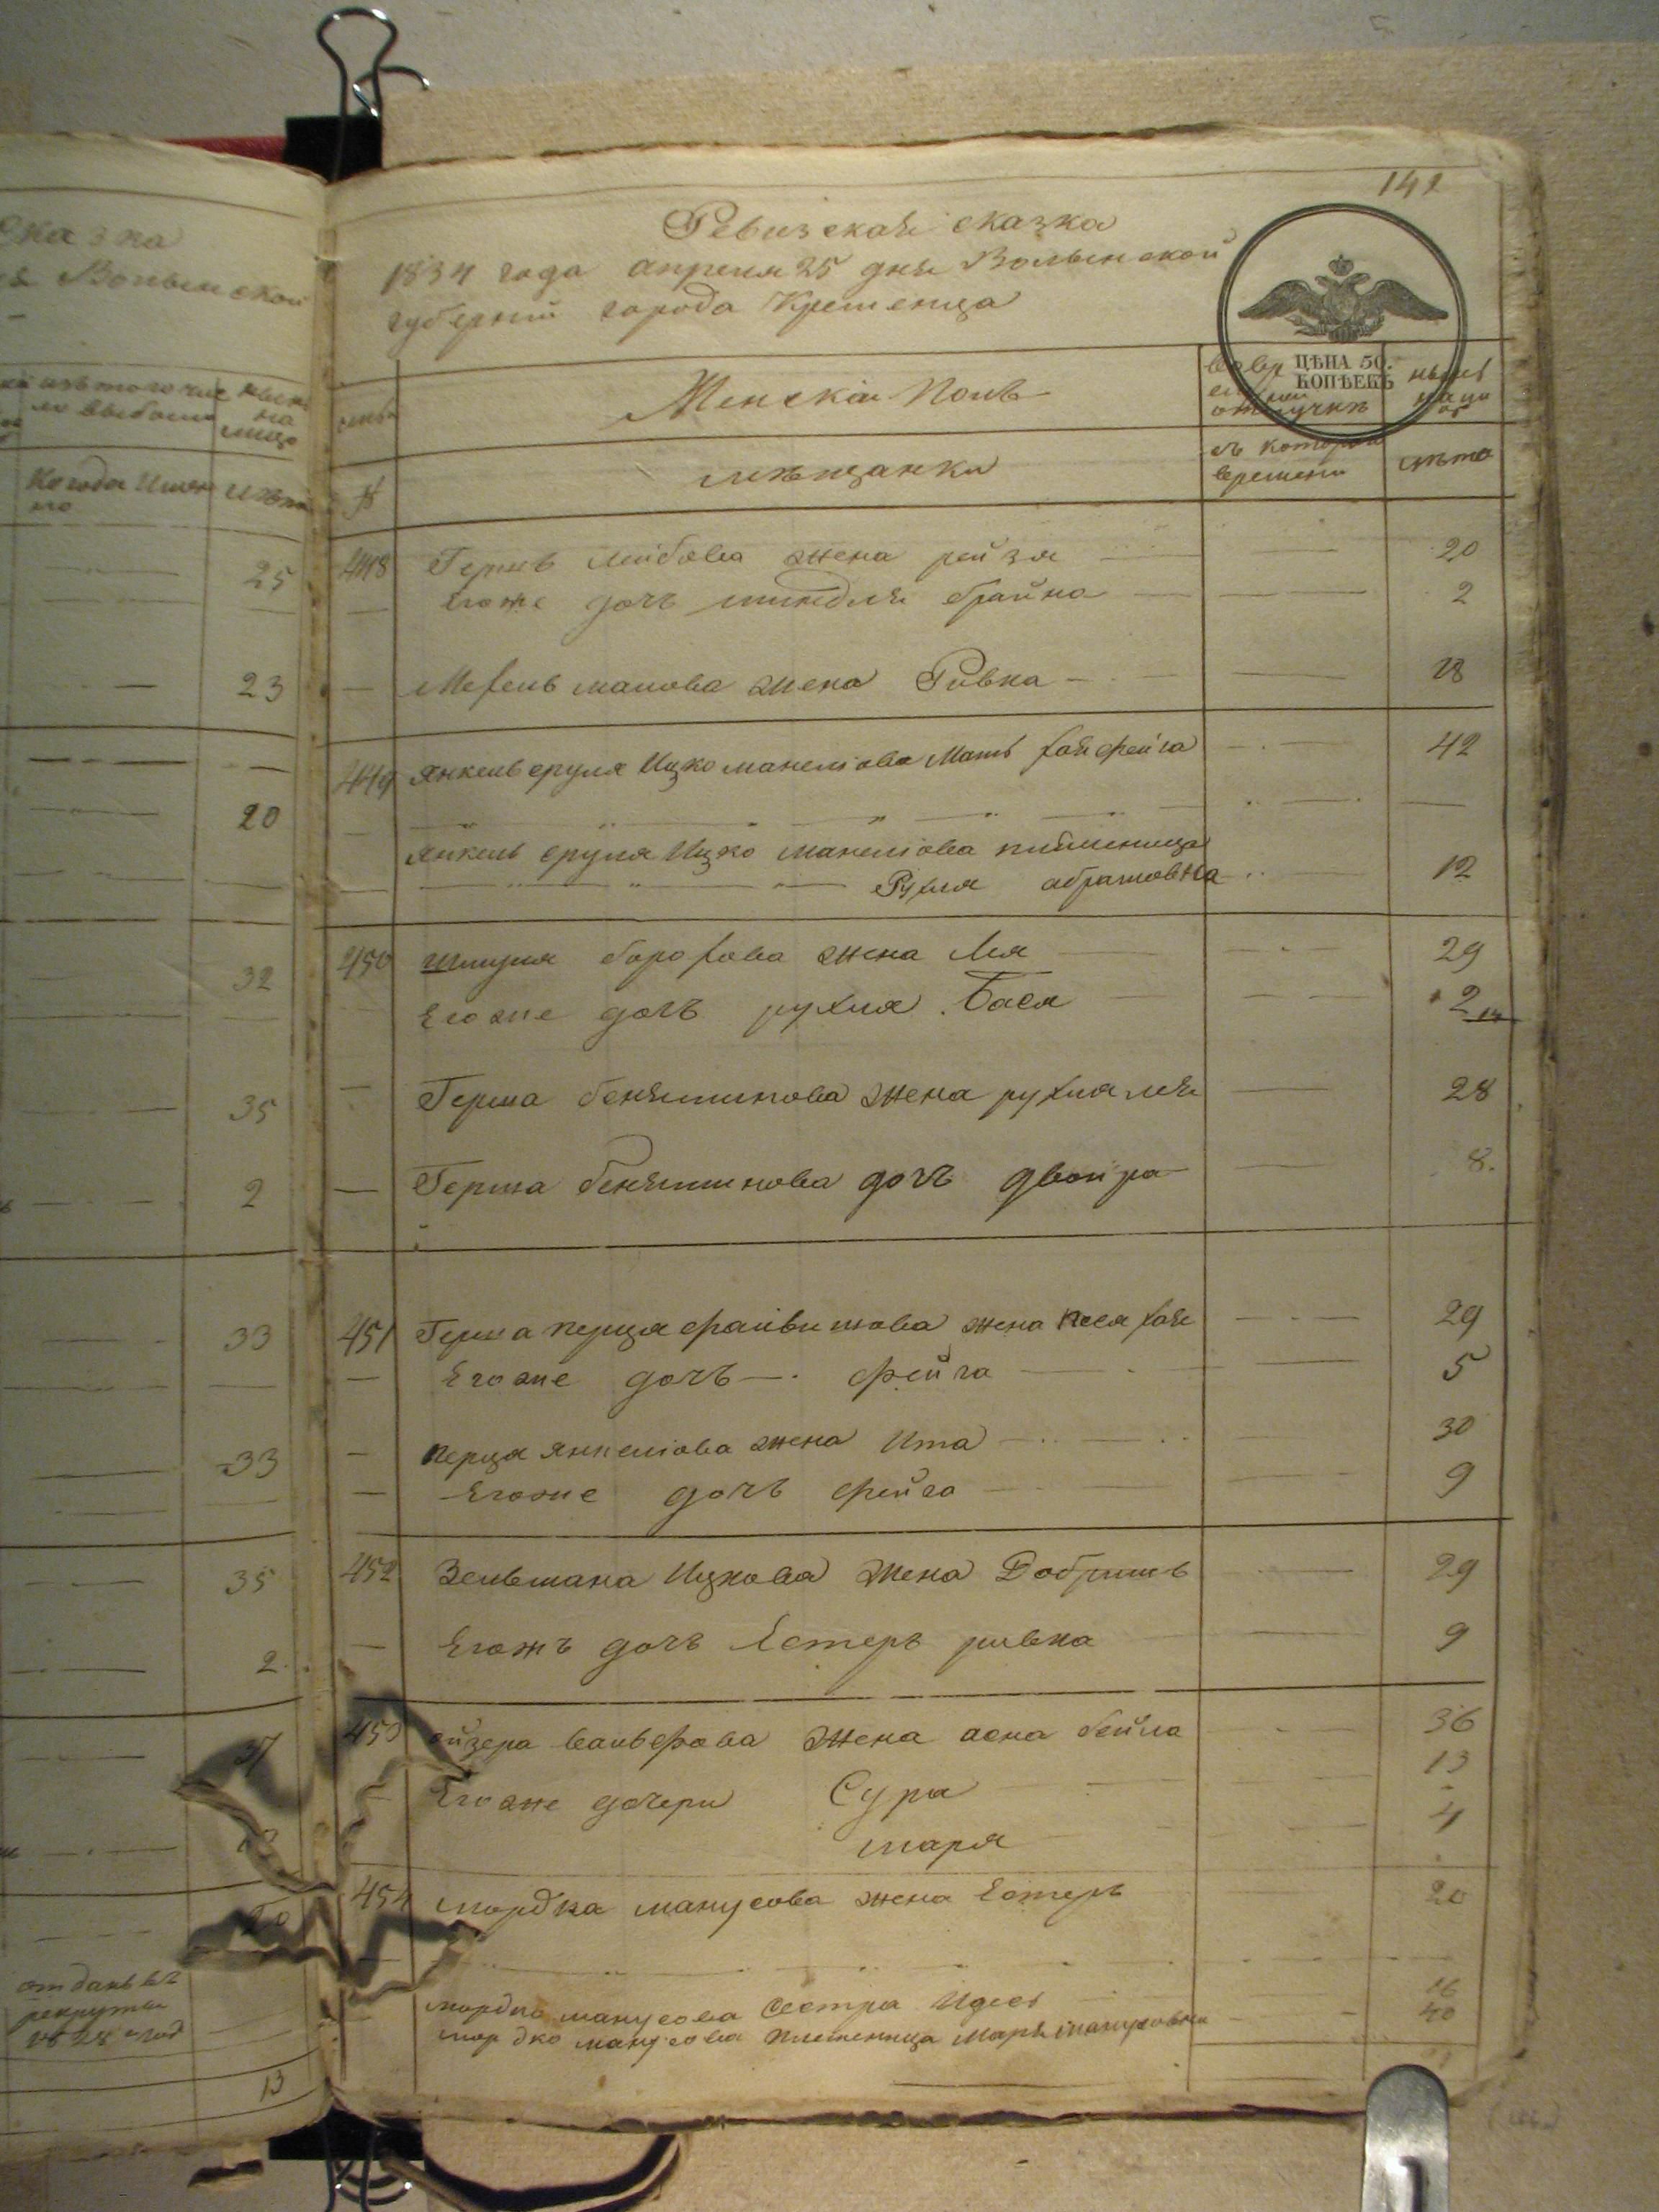 сказка
Волынской
изъ того числа
выбыло
ныне
на
лицо
когда именно
лета
25
23
20
32
35
2
33
33
35
2
37
отданъ въ
рекруты
1828 год
13
141
Ревизская сказка
1834 года апреля 25 дня Волынской
губернiи города Кременца
ЦѢНА 50.
КОПѢЕКЪ
Женскiй Полъ
отлучкѣ
мѣщанки
съ котораго
времени
лѣта
448 Герша лейбова жена рейзя 20
Егоже дочъ миндля брайна 2
мановa жена Ривка 18
449 Янкель сруля Ицко манелiова Мать хая фейга 42
Янкель сруля Ицко манелiова племеница
Рухля абрамовна 12
450 Шмуля борохова жена Лея 29
Егоже дочъ рухля Бася 2
Герша беняминова жена рухля лея 28
Герша беняминова дочъ двойра 8.
451 Герша перця файвишова жена песя хая 29
Егоже дочъ фейга 5
перця янкелiова жена Ита 30
Егоже дочъ фейга 9
452 Зельмана Ицкова жена Добришъ 29
Егожъ дочъ Естеръ ривка 9
453 ойзера вольфова жена асна бейла 36
Егоже дочери Сура 13
маря 4
454 мордка манусова жена Естеръ 20
мордко манусова Сестра Идесъ 16
мордко манусова племеница Маря 40